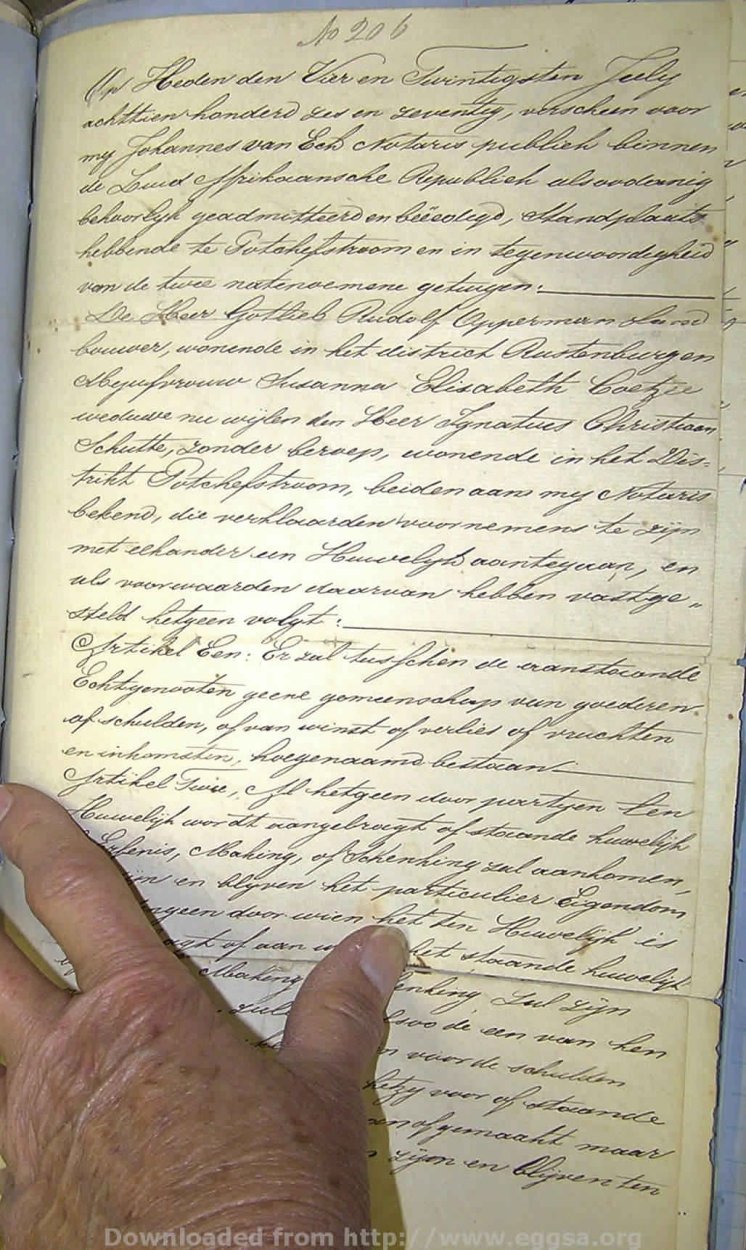 No 206
Op Heden den Vier en Twintigsten Juli
achttien honderd zes en zeventig, verscheen voor
my Johannes van Eck Notaris publiek binnen
de Zuid Afrikaansche Republiek alsoodanig
behoorlyk geadmitteerd en beëedigd, Standplaats
hebbende te Potchefstroom en in tegenwoordigheid
van de twee natenoemene getuigen:
De Heer Gotlieb Rudolf Opperman Land
bouwer, wonende in het district Rustenburg en
Mejufvrouw Susanna Elisabeth Coetzee
weduwe nu wijlen den Heer Ignatius Christiaan
Schutte, zonder beroep, wonende in het Dis=
trikt Potchefstroom, beiden aan my Notaris
bekend, die verklaarden voornemens te zijn
met elkander een Huwelyk aantegaan, en
als voorwaarden daarvan hebben vastge„
steld hetgeen volgt:
Artikel Een: Er zal tusschen de aanstaande
Echtgenooten geene gemeenschap van goederen
of schulden, of van winst of verlies of vruchten
en inkomsten, hoegenaamd bestaan
Artikel Twee, Al hetgeen door partyen ten
Huwelijk wordt aangebragt of staande huwelijk
Erfenis, Making, of Schenking zal aankomen,
zijn en blyven het particulier Eigendom
geen door wien het ten Huwelijk is
of aan het staande huwelijk
Making zal zijn
zul de een van hen
voor de schulden
hetzy voor of staande
gemaakt maar
zijn en blijven ten
Downloaded from http://www.eggsa.org